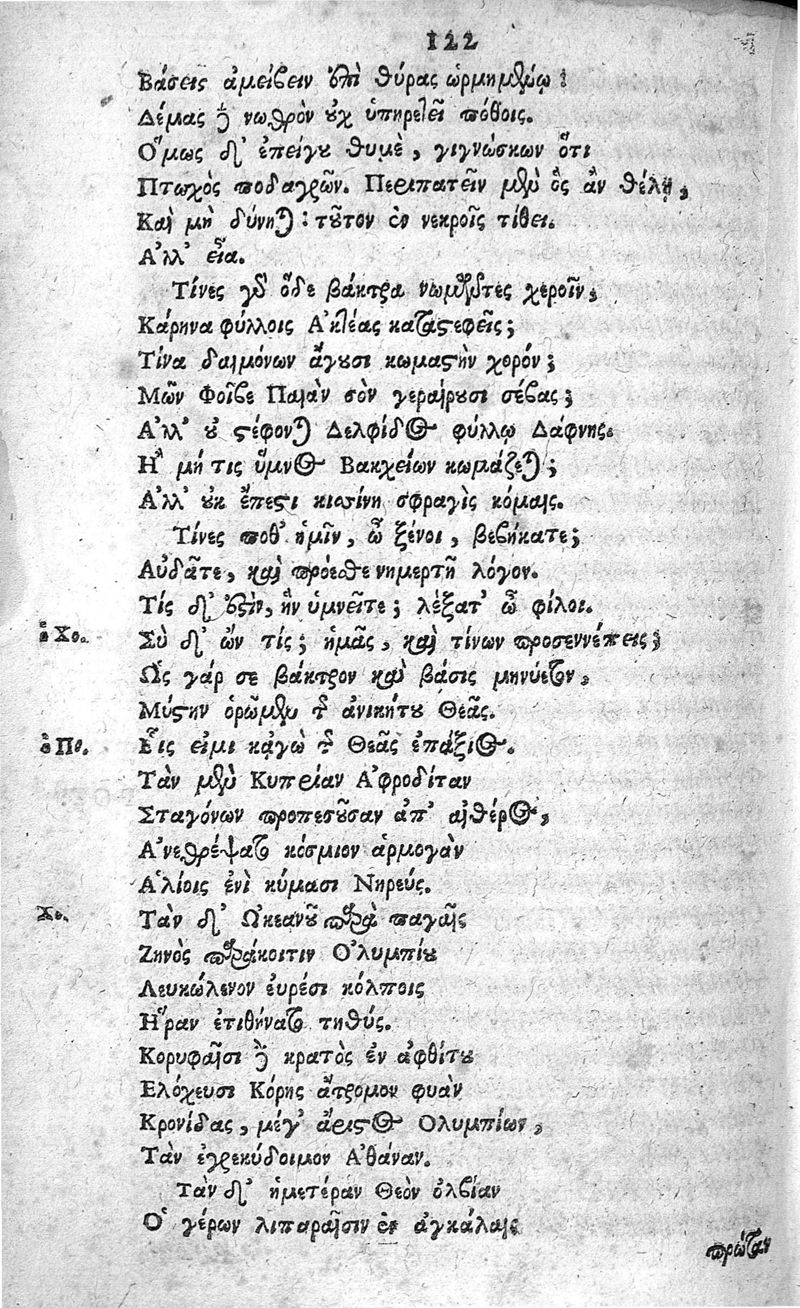 122
Βάσεις ἀμείβειν ἐπὶ θύρας ὡρμημένῳ:
Δέμας δὲ νωθρὸν οὐχ ὑπηρετεῖ πόθοις.
Ὅμως δ' ἐπείγου θυμὲ, γιγνώσκων ὅτι
Πτωχὸς ποδαγρῶν. Περιπατεῖν μὲν ὃς ἂν θέλῃ,
Καὶ μὴ δύνηται: τοῦτον ἐν νεκροῖς τίθει.
Ἀλλ' εἶα.
Τίνες γὰρ οἵδε βάκτρα νωμῶντες χεροῖν,
Κάρηνα φύλλοις Ἀκτέας καταστεφεῖς;
Τίνα δαιμόνων ἄγουσι κωμαστὴν χορόν;
Μῶν Φοῖβε Παιὰν σὸν γεραίρουσι σέβας;
Ἀλλ' οὐ στέφονται Δελφίδος φύλλῳ Δάφνης.
Ἢ μή τις ὕμνος Βακχείων κωμάζεται;
Ἀλλ' οὐκ ἔπεστι κισσίνη σφραγὶς κόμαις.
Τίνες ποθ' ἡμῖν, ὦ ξένοι, βεβήκατε;
Αὐδᾶτε, καὶ πρόεσθε νημερτῆ λόγον.
Τίς δ' ἐστὶν, ἣν ὑμνεῖτε; λέξατ' ὦ φίλοι.
ὁ Χο. Σὺ δ' ὢν τίς; ἡμᾶς, καὶ τίνων προσεννέπεις;
Ὡς γάρ σε βάκτρον καὶ βάσις μηνύετον,
Μύστην ὁρῶμεν τῆς ἀνικήτου Θεᾶς.
ὁ Πο. Εἷς εἰμι κἀγὼ τῆς Θεᾶς ἐπάξιος.
Τὰν μὲν Κυπρίαν Ἀφροδίταν
Σταγόνων προπεσοῦσαν ἀπ' αἰθέρος,
Ἀνεθρέψατο κόσμιον ἁρμογὰν
Ἁλίοις ἐνὶ κύμασι Νηρεύς.
Χο. Τὰν δ' Ὠκεανοῦ παρὰ παγαῖς
Ζηνὸς παράκοιτιν Ὀλυμπίου
Λευκώλενον εὐρέσι κόλποις
Ἥραν ἐτιθήνατο τηθύς.
Κορυφαῖσι δὲ κρατὸς ἐν ἀφθίτου
Ἐλόχευσε Κόρης ἄτρομον φυὰν
Κρονίδας, μέγ' ἄριστος Ὀλυμπίων,
Τὰν ἐγρεκύδοιμον Ἀθάναν.
Τὰν δ' ἡμετέραν Θεὸν ὀλβίαν
Ὁ γέρων λιπαραῖσιν ἐν ἀγκάλαις
πρώταν